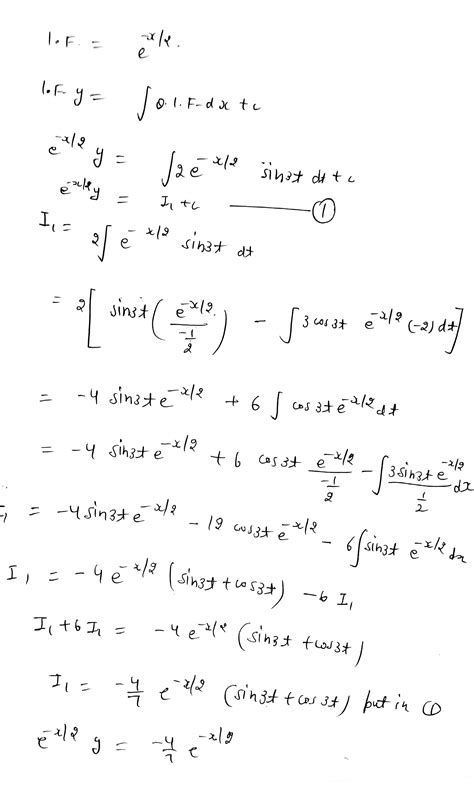 I.F. = e^{-x/2}.
I.F. y = ∫ Q. I.F. dx + c
e^{-x/2} y = ∫ 2 e^{-x/2} sin3t dt + c
e^{-x/2} y = I₁ + c ——— ①
I₁ = 2∫ e^{-x/2} sin3t dt
= 2[ sin3t ( e^{-x/2} / (-1/2) ) - ∫ 3 cos3t e^{-x/2} (-2) dt ]
= -4 sin3t e^{-x/2} + 6 ∫ cos3t e^{-x/2} dt
= -4 sin3t e^{-x/2} + 6 cos3t e^{-x/2} / (-1/2) - ∫ 3 sin3t e^{-x/2} / (1/2) dx
I₁ = -4 sin3t e^{-x/2} - 12 cos3t e^{-x/2} - 6 ∫ sin3t e^{-x/2} dx
I₁ = -4 e^{-x/2} (sin3t + cos3t) - 6 I₁
I₁ + 6 I₁ = -4 e^{-x/2} (sin3t + cos3t)
I₁ = -4/7 e^{-x/2} (sin3t + cos3t) put in ①
e^{-x/2} y = -4/7 e^{-x/2}